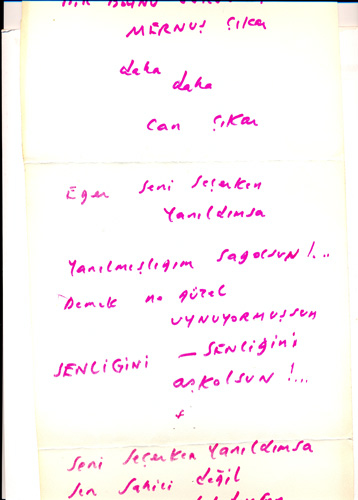 MERNUŞ ÇIKAR
daha
daha
Can ÇIKAR
Eğer seni seçerken
yanıldımsa
yanılmışlığım sagolsun!...
Demek ne güzel
uynuyormuşsun
SENLiĞiNi — SENLiĞiNi
aşkolsun!...
Seni seçerken yanıldımsa
sen sahici değil